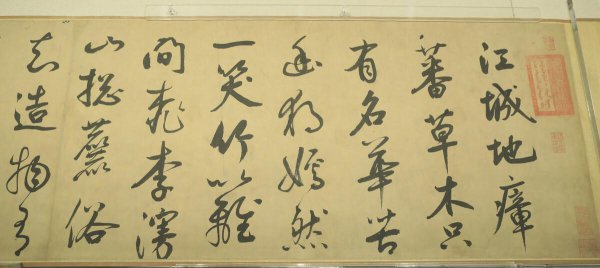 江城地瘴
蕃草木只
有名華苦
幽獨嫣然
一笑竹籬
間桃李漫
山摠麤俗
知造物有